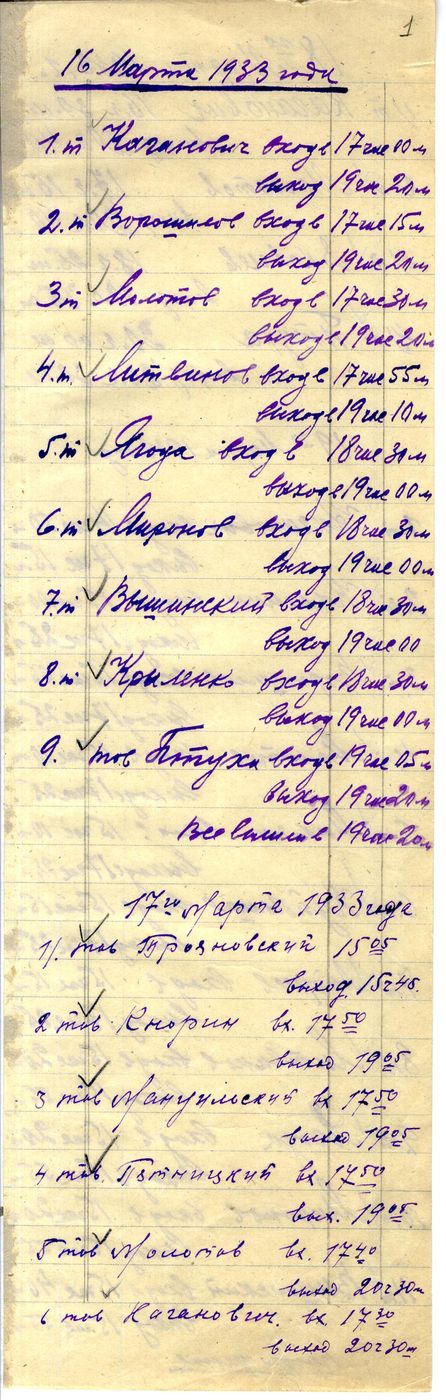 1
16 Марта 1933 года
1. т Каганович вход в 17 час 00 м
выход 19 час 20 м
2. т Ворошилов вход в 17 час 15 м
выход 19 час 20 м
3 т Молотов вход в 17 час 30 м
выход в 19 час 20 м
4. т. Литвинов вход в 17 час 55 м
выход в 19 час 10 м
5. т Ягода вход в 18 час 30 м
выход в 19 час 00 м
6. т Миронов вход в 18 час 30 м
выход 19 час 00 м
7. т Вышинский вход в 18 час 30 м
выход 19 час 00
8. т Крыленко вход в 18 час 30 м
выход 19 час 00 м
9. тов Птуха вход в 19 час 05 м
выход 19 час 20 м
Все вышли в 19 час 20 м
17го Марта 1933 года
1/. тов Трояновский 15 05
выход 15 ч 45.
2 тов Кнорин вх. 17 50
выход 19 05
3 тов Мануильский вх 17 50
выход 19 05
4 тов. Пятницкий вх 17 50
вых. 19 05
5 тов Молотов вх. 17 40
выход 20 ч 30 м
6 тов Каганович. вх. 17 30
выход 20 ч 30 м